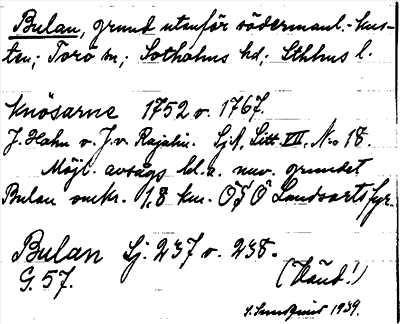 Bulan, grund utanför södermanl.-kus-
ten; Torö sn; Sotholms hd; Sthlms l.
Knösarne 1752 o. 1767.
J. Hahn o. J. v. Rajalin. Sjk. Litt. VII. No 18.
Möjl. avsågs bl. a. nuv. grundet
Bulan omkr. 1,8 km. ÖSÖ Landsorts fyr.
Bulan Sj. 237 o. 238.
G. 57.
(Känd!)
S. Sundquist 1939.